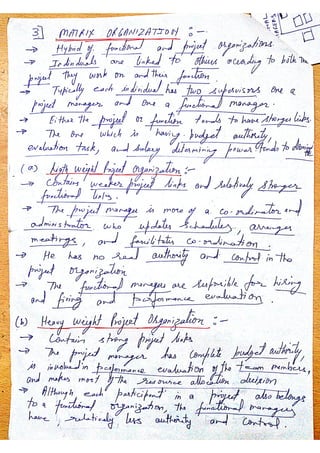 3] MATRIX ORGANIZATION :-
→ Hybrid of functional and project organizations.
→ Individuals are linked to others according to both the
project they work on and their function
→ Typically each individual has two supervisors one a
project manager and one a functional manager.
→ Either the project or function tends to have stronger links.
→ The one which is having budget authority,
evaluation task, and salary determining power tends to
(a) Light Weight Project Organization :-
→ Contains weaker project links and relatively stronger
functional links.
→ The project manager is more of a co-ordinator and
administrator who updates schedules, arranges
meetings, and facilitates co-ordination.
→ He has no real authority and control in the
project organization
→ The functional managers are responsible for hiring
and firing and performance evaluation.
(b) Heavy Weight Project Organization :-
→ Contain strong project links
→ The project manager has complete budget authority,
is involved in performance evaluation of the team members,
and makes most of the resource allocation decision
→ Although each participant in a project also belongs
to a functional organization, the functional managers
have relatively less authority and control.